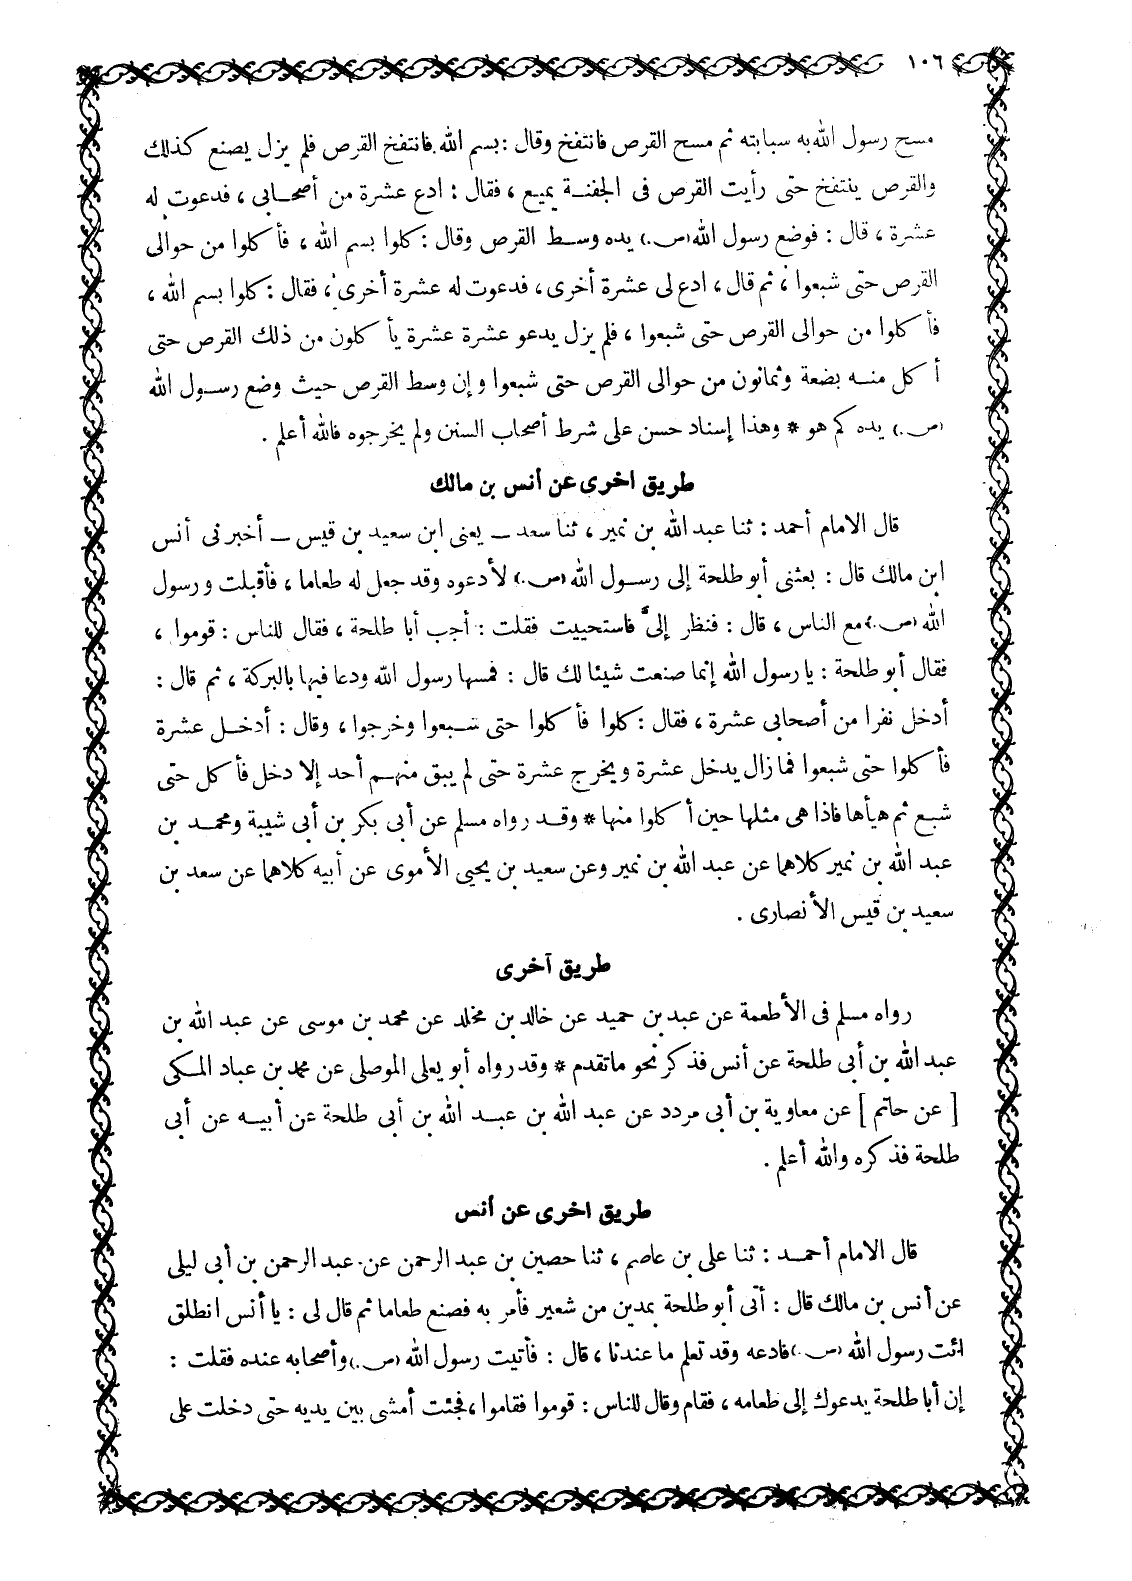 ١٠٦
مسح رسول الله به سبابته ثم مسح القرص فانتفخ وقال : بسم الله فانتفخ القرص فلم يزل يصنع كذلك
والقرص ينتفخ حتى رأيت القرص فى الجفنة يميع ، فقال : ادع عشرة من أصحابى ، فدعوت له
عشرة ، قال : فوضع رسول الله (ص.) يده وسط القرص وقال : كلوا بسم الله ، فأ كلوا من حوالى
القرص حتى شبعوا ، ثم قال ، ادع لى عشرة أخرى ، فدعوت له عشرة أخرى ، فقال : كلوا بسم الله ،
فأ كلوا من حوالى القرص حتى شبعوا ، فلم يزل يدعو عشرة عشرة يأ كلون من ذلك القرص حتى
أ كل منه بضعة وثمانون من حوالى القرص حتى شبعوا وإن وسط القرص حيث وضع رسول الله
(ص.) يده كم هو * وهذا إسناد حسن على شرط أصحاب السنن ولم يخرجوه فالله أعلم .
طريق اخرى عن أنس بن مالك
قال الامام أحمد : ثنا عبد الله بن نمير ، ثنا سعد ــ يعنى ابن سعيد بن قيس ــ أخبرنى أنس
ابن مالك قال : بعثنى أبو طلحة إلى رسول الله (ص.) لأدعوه وقد جعل له طعاما ، فأقبلت ورسول
الله (ص.) مع الناس ، قال : فنظر إلىّ فاستحييت فقلت : أجب أبا طلحة ، فقال للناس : قوموا ،
فقال أبو طلحة : يا رسول الله إنما صنعت شيئا لك قال : فمسها رسول الله ودعا فيها بالبركة ، ثم قال :
أدخل نفرا من أصحابى عشرة ، فقال : كلوا فأ كلوا حتى شبعوا وخرجوا ، وقال : أدخل عشرة
فأ كلوا حتى شبعوا فما زال يدخل عشرة ويخرج عشرة حتى لم يبق منهم أحد إلا دخل فأ كل حتى
شبع ثم هيأها فاذا هى مثلها حين أ كلوا منها * وقد رواه مسلم عن أبى بكر بن أبى شيبة ومحمد بن
عبد الله بن نمير كلاهما عن عبد الله بن نمير وعن سعيد بن يحيى الأموى عن أبيه كلاهما عن سعد بن
سعيد بن قيس الأنصارى .
طريق آخرى
رواه مسلم فى الأطعمة عن عبد بن حميد عن خالد بن مخلد عن محمد بن موسى عن عبد الله بن
عبد الله بن أبى طلحة عن أنس فذكر نحو ما تقدم * وقد رواه أبو يعلى الموصلى عن محمد بن عباد المكى
[ عن حاتم ] عن معاوية بن أبى مردد عن عبد الله بن عبد الله بن أبى طلحة عن أبيه عن أبى
طلحة فذكره والله أعلم .
طريق اخرى عن أنس
قال الامام أحمد : ثنا على بن عاصم ، ثنا حصين بن عبد الرحمن عن عبد الرحمن بن أبى ليلى
عن أنس بن مالك قال : أتى أبو طلحة بمدين من شعير فأمر به فصنع طعاما ثم قال لى : يا أنس انطلق
ائت رسول الله (ص.) فادعه وقد تعلم ما عندنا ، قال : فأتيت رسول الله (ص.) وأصحابه عنده فقلت :
إن أبا طلحة يدعوك إلى طعامه ، فقام وقال للناس : قوموا فقاموا ، فجئت أمشى بين يديه حتى دخلت على